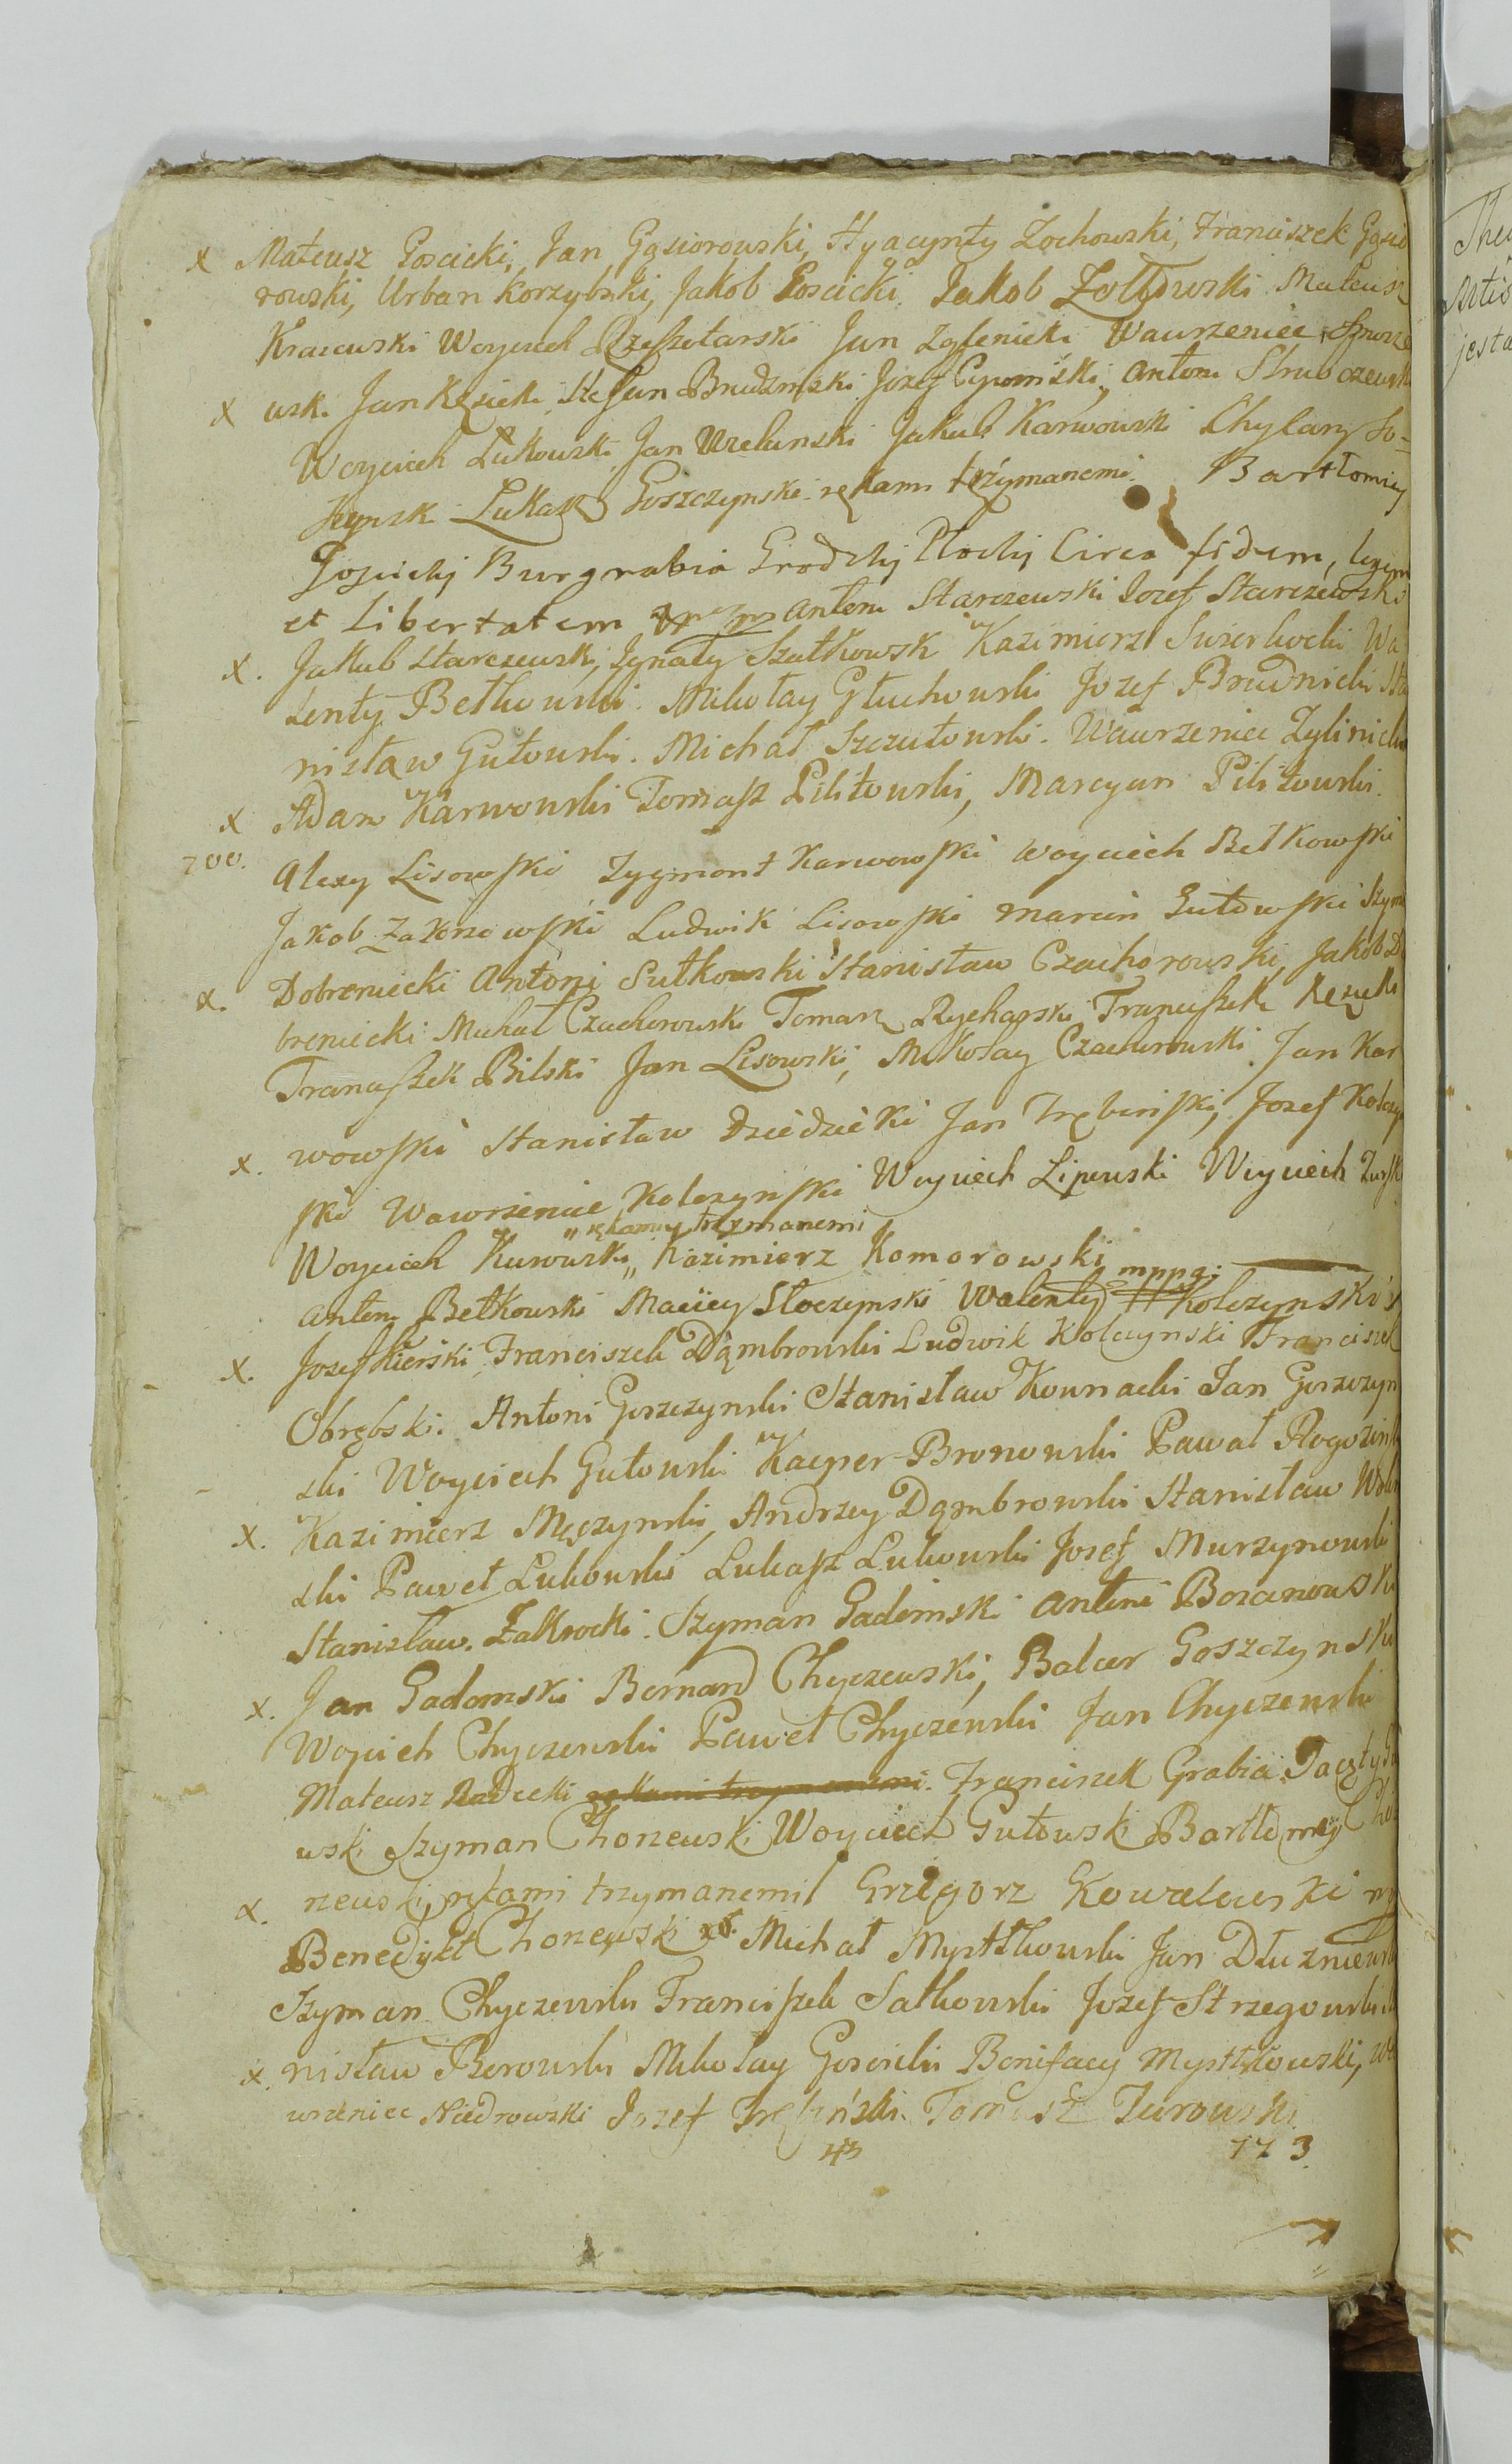 x Mateusz Goscicki, Jan Gąsiorowski, Hyacynty Zochowski, Franciszek Gąsio
rowski, Urban Korzybski, Jakob Goscicki. Jakob Zołtowski Mateusz
Kraiewski Woyciech Rzeszotarski Jan Zglenicki Wawrzeniec
x wsk. Jan Kęsicki, Stefan Brudzinski Jozef antoni
Woyciech Łukowski Jan Jakub Karwowski Chylary So-
Łukasz Goszczynski rękami trzymanemi. Bartłomiey
Gosicky Burgrabia Grodzky Płocky Circa fidem, legem
et libertatem antoni Starczewski Jozef Starczewski
x. Jakub starczewski, Ignaty Szatkowsk Kazimierz Swierkocki Wa
lenty Betkowski. Mikołay Głuchowski Jozef Brudnicki Sta
nisław Gutowski. Michał Szczutowski. Wawrzeniec Zylinicki
x Adam Karwowski Tomasz Pilitowski, Marcyan Pilitowski.
700. Alexy Lisowski Zygmont Karwowski Woyciech Betkowski
Jakob Zakrzewski Ludwik Lisowski Marcin Gutowski Szym
x. Dobreniecki Antoni Sutkowski Stanisław Czachorowski, Jakób Do
breniecki Michał Czachorowski Tomasz Rycharski Franciszek Kęsicki
Franciszek Bilski Jan Lisowski, Mikołay Czachorowski Jan Kar
x. wowski Stanisław Dziedzicki Jan Trębinski, Jozef Kolczyn
ski Wawrzeniec Kolczynski Woyciech Lipowski Woyciech
„rękamy trzymanemi
Woyciech Kurowski „ Kazimierz Komorowski mppą:
antoni Betkowski Maciey Stoczynski Walenty Kolczynski
x. Jozef Kierski Franciszek Dąmbrowski Ludwik Kolczynski Franciszek
Obrębski. Antoni Goszczynski Stanisław Kownacki Jan Goszczyn
ski Woyciech Gutowski Kacper Bronowski Pawał Rogozinsk
x. Kazimierz Męczynski, Andrzey Dąmbrowski Stanisław Wols
ski Paweł Lukowski Lukasz Lukowski Jozef Murzynowski
Stanisław. Zakrocki. Szyman Gadomski antoni Bozanowski
x. Jan Gadomski Bernard Chyczewski, Balcer Goszczynski
Wojcich Chyczewski Paweł Chyczewski Jan Chyczewski
Mateusz Radecki rękami trzymanemi. Franciszek Grabia.
wski Szyman Choncwski Woyciech Gutowski Bartłomiy Cho
x. newski, rękami trzymanemi Grzegorz Kowalewski
Benedykt Chonewski Michał Mystkowski Jan Dłuzniewsk
Szyman Chyczewski Franciszek Sutkowski Jozef Strzegowski
x. nisław Borowski Mikołay Goscicki Bonifacy Mystkowski, wa
wrzeniec Niedrowski Jozef Trębiński. Tomasz Zurowski.
773.